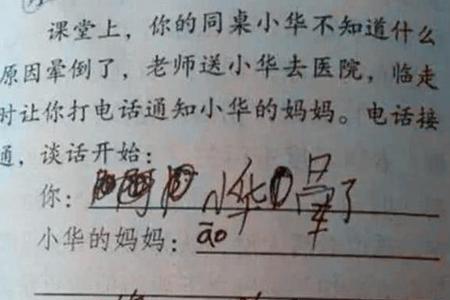 课堂上，你的同桌小华不知道什么
原因晕倒了，老师送小华去医院，临走
时让你打电话通知小华的妈妈。电话接
通，谈话开始：
你：小华晕了
小华的妈妈：āo